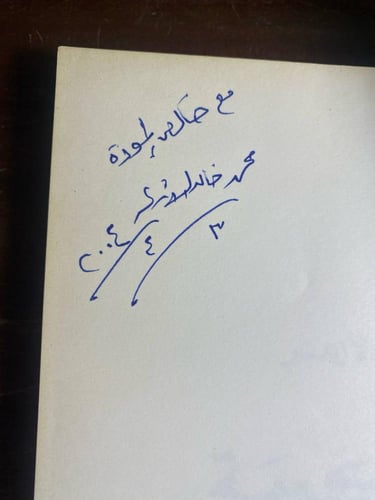 مع خالص المودة
محمد خالد
٣ / ٤ / ٢٠٠٤